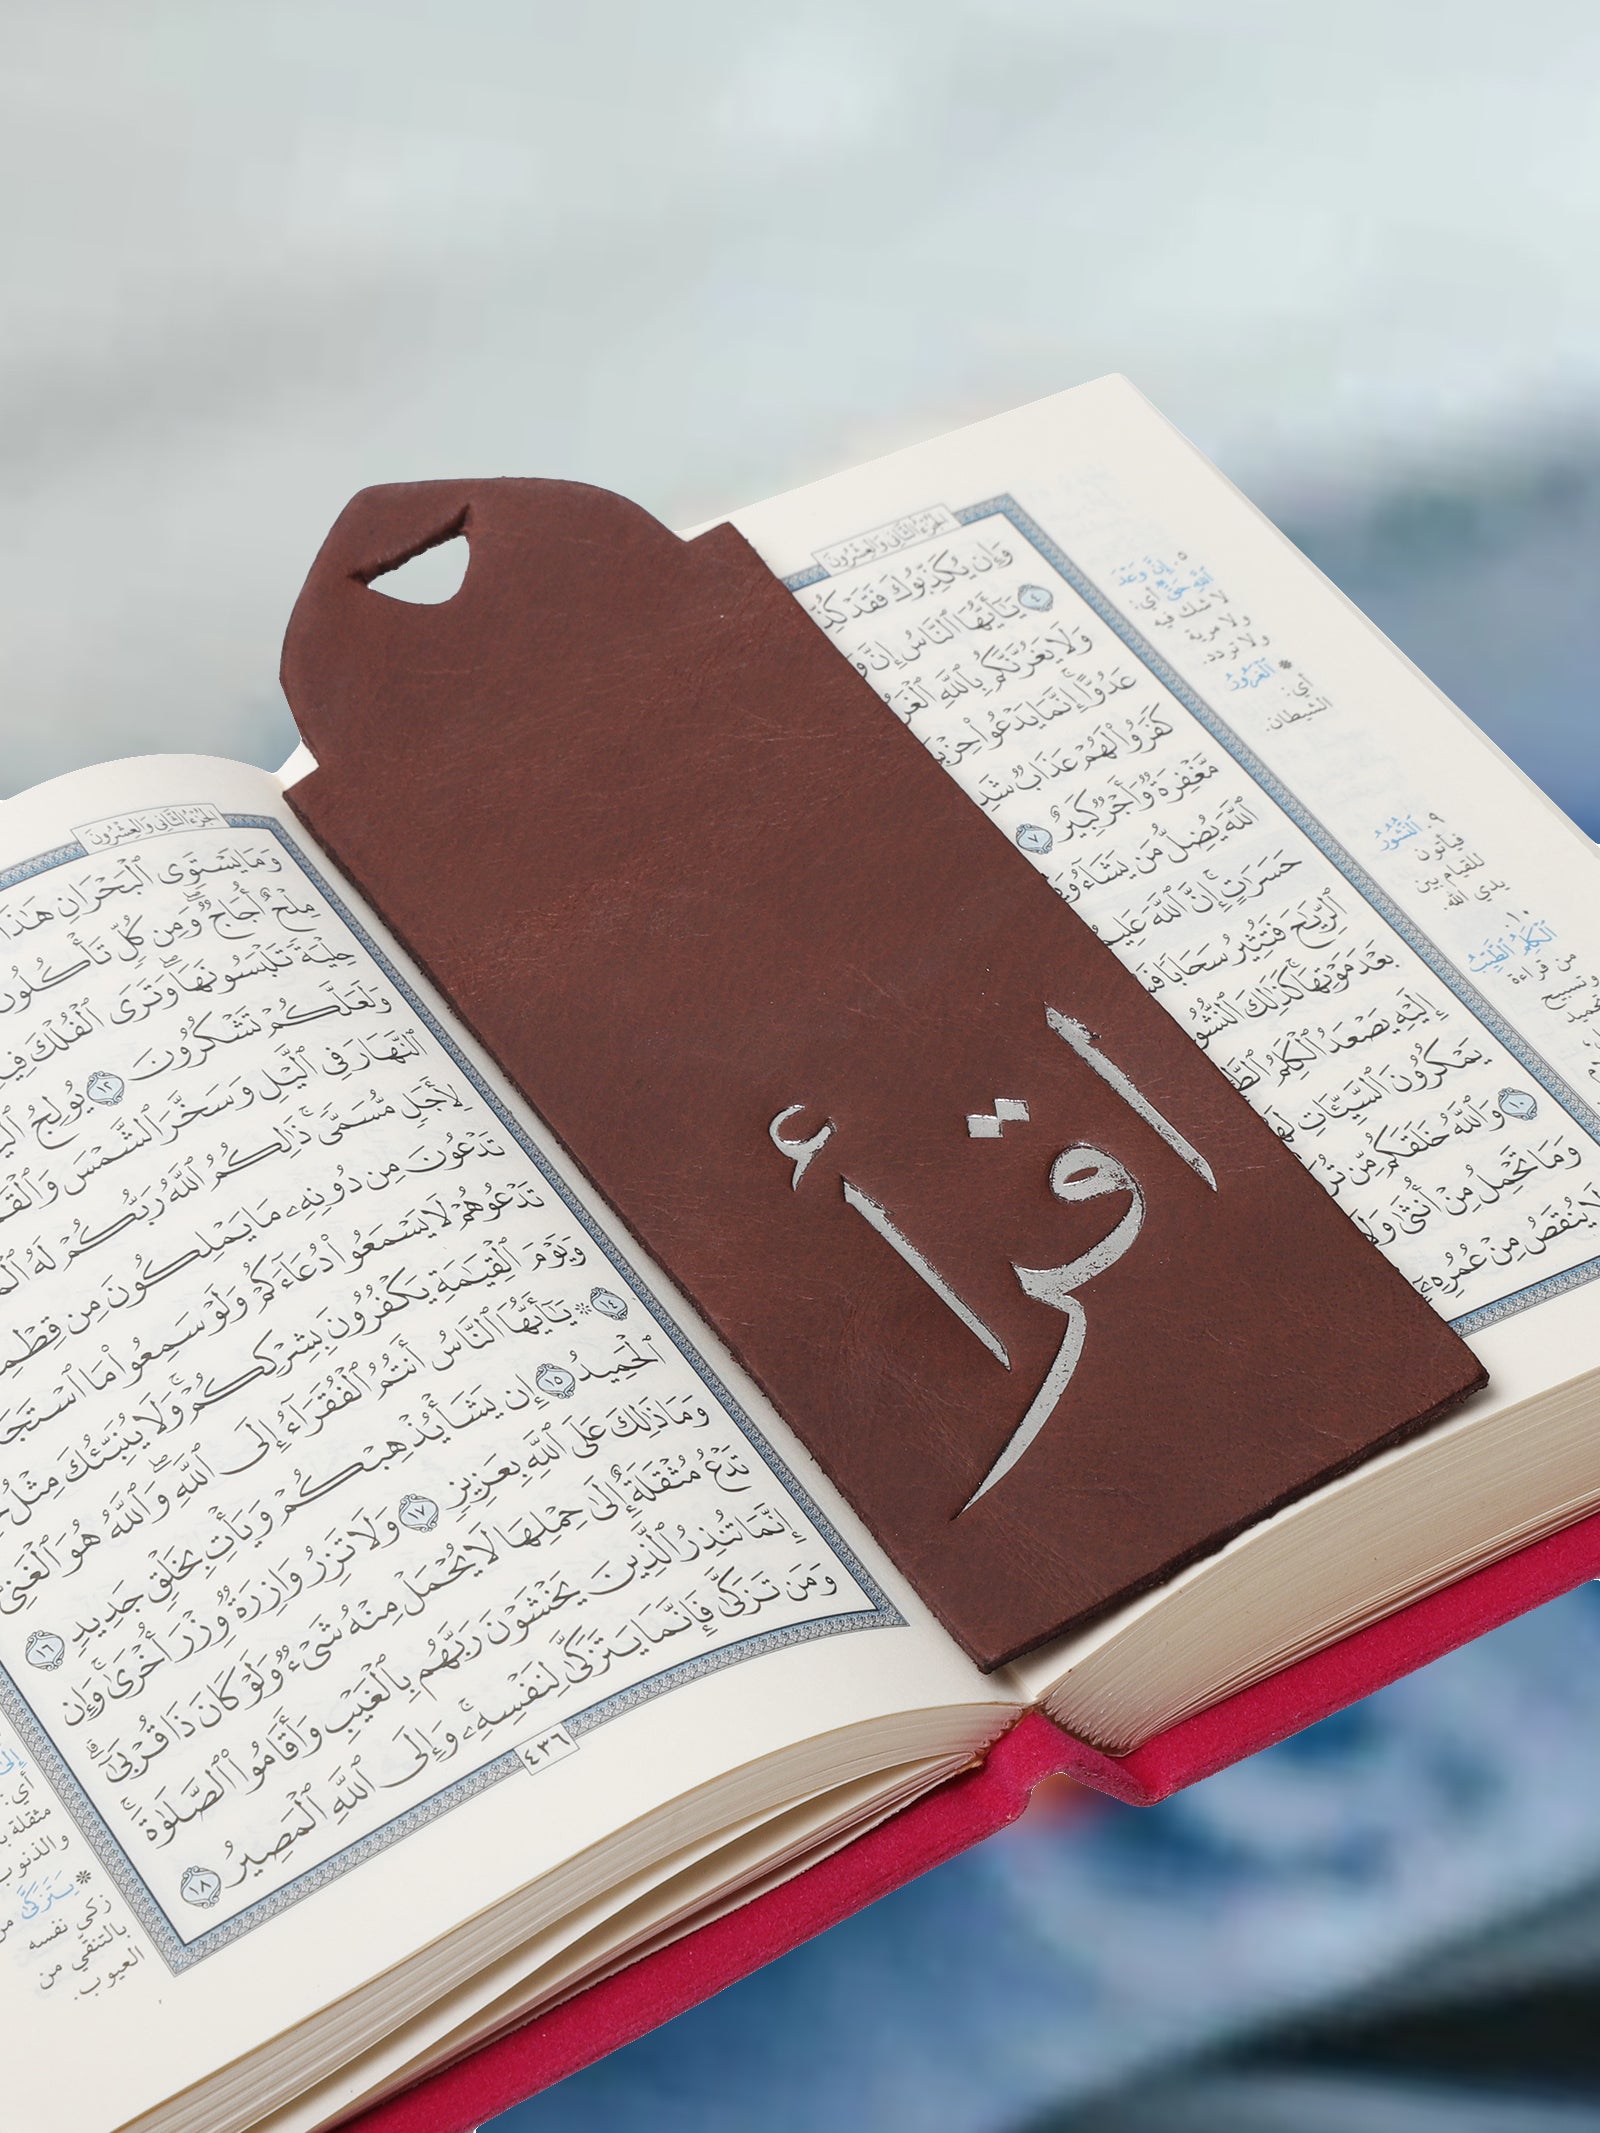 اقرأ
الجزء الثاني والعشرون
وَإِن يُكَذِّبُوكَ فَقَدْ
٤ يَـٰٓأَيُّهَا ٱلنَّاسُ إِنَّ
وَلَا يَغُرَّنَّكُم بِٱللَّهِ
عَدُوًّا ۚ إِنَّمَا يَدْعُوا۟
كَفَرُوا۟ لَهُمْ عَذَابٌ
مَّغْفِرَةٌ وَأَجْرٌ كَبِيرٌ ٧
ٱللَّهَ يُضِلُّ مَن يَشَآءُ
حَسَرَٰتٍ ۚ إِنَّ ٱللَّهَ
ٱلرِّيَـٰحَ فَتُثِيرُ سَحَابًا
بَعْدَ مَوْتِهَا ۚ كَذَٰلِكَ ٱلنُّشُو
إِلَيْهِ يَصْعَدُ ٱلْكَلِمُ
يَمْكُرُونَ ٱلسَّيِّـَٔاتِ
١٠ وَٱللَّهُ خَلَقَكُم مِّن
وَمَا تَحْمِلُ مِنْ أُنثَىٰ
يُنقَصُ مِنْ عُمُرِهِۦٓ
٥. إِنَّ وَعْدَ
ٱللَّهِ حَقٌّ أي:
لا شك فيه
ولا مرية
ولا تردد.
* ٱلْغَرُورُ
أي:
الشيطان.
٩. ٱلنُّشُورُ
فيأتون
للقيام بين
يدي الله.
١٠.
ٱلْكَلِمُ ٱلطَّيِّبُ
من قراءة
الجزء الثاني والعشرون
وَمَا يَسْتَوِى ٱلْبَحْرَانِ هَـٰذَا
مِلْحٌ أُجَاجٌ ۖ وَمِن كُلٍّ تَأْكُلُونَ
حِلْيَةً تَلْبَسُونَهَا ۖ وَتَرَى ٱلْفُلْكَ فِي
وَلَعَلَّكُمْ تَشْكُرُونَ ١٢ يُولِجُ
ٱلنَّهَارَ فِى ٱلَّيْلِ وَسَخَّرَ ٱلشَّمْسَ
لِأَجَلٍ مُّسَمًّى ۚ ذَٰلِكُمُ ٱللَّهُ رَبُّكُمْ لَهُ
تَدْعُونَ مِن دُونِهِۦ مَا يَمْلِكُونَ مِن
تَدْعُوهُمْ لَا يَسْمَعُوا۟ دُعَآءَكُمْ وَلَوْ سَمِعُوا۟ مَا
وَيَوْمَ ٱلْقِيَـٰمَةِ يَكْفُرُونَ بِشِرْكِكُمْ ۚ وَلَا يُنَبِّئُكَ مِثْلُ
١٤ ۞ يَـٰٓأَيُّهَا ٱلنَّاسُ أَنتُمُ ٱلْفُقَرَآءُ إِلَى ٱللَّهِ ۖ وَٱللَّهُ هُوَ ٱلْغَنِىُّ
ٱلْحَمِيدُ ١٥ إِن يَشَأْ يُذْهِبْكُمْ وَيَأْتِ بِخَلْقٍ جَدِيدٍ ١٦
وَمَا ذَٰلِكَ عَلَى ٱللَّهِ بِعَزِيزٍ ١٧ وَلَا تَزِرُ وَازِرَةٌ وِزْرَ أُخْرَىٰ ۚ وَإِن
تَدْعُ مُثْقَلَةٌ إِلَىٰ حِمْلِهَا لَا يُحْمَلْ مِنْهُ شَىْءٌ وَلَوْ كَانَ ذَا قُرْبَىٰٓ ۗ
إِنَّمَا تُنذِرُ ٱلَّذِينَ يَخْشَوْنَ رَبَّهُم بِٱلْغَيْبِ وَأَقَامُوا۟ ٱلصَّلَوٰةَ ۚ
وَمَن تَزَكَّىٰ فَإِنَّمَا يَتَزَكَّىٰ لِنَفْسِهِۦ ۚ وَإِلَى ٱللَّهِ ٱلْمَصِيرُ ١٨
٤٣٦
أي:
مثقلة
والذنوب
* يَتَزَكَّىٰ
زكى نفسه
بالتنقي من
العيوب.